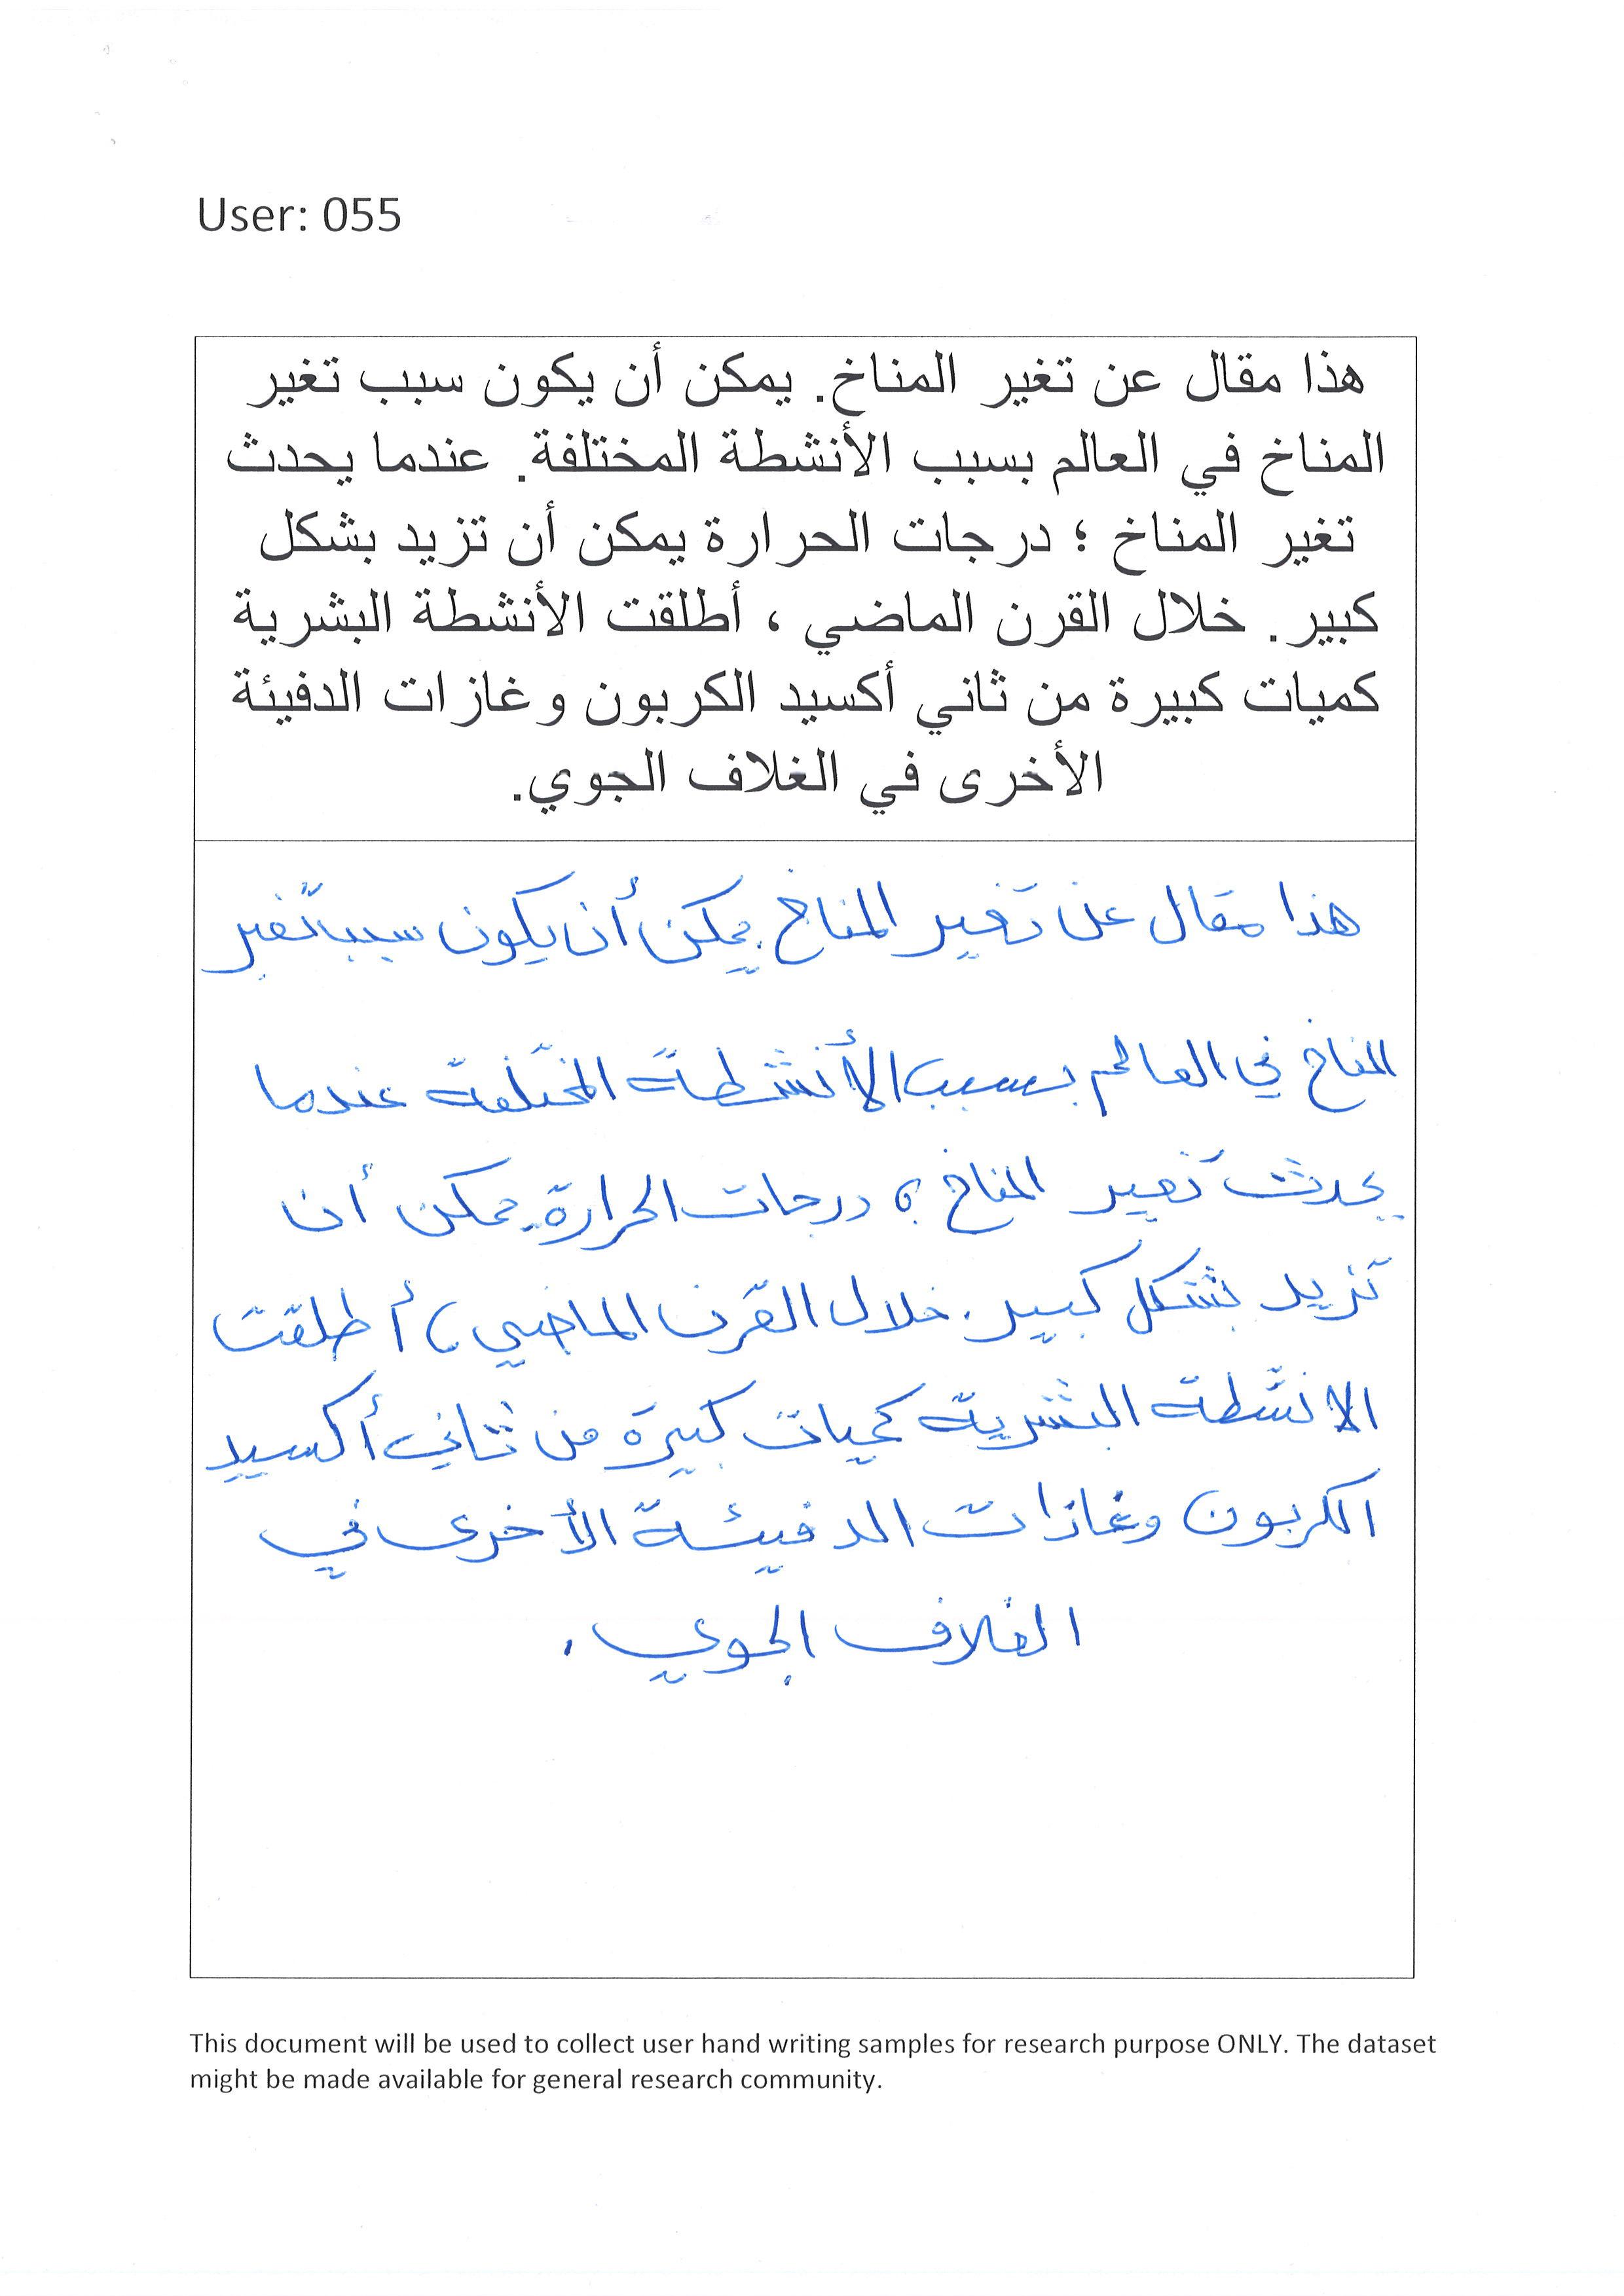 User: 055
هذا مقال عن تغير المناخ. يمكن أن يكون سبب تغير
المناخ في العالم بسبب الأنشطة المختلفة. عندما يحدث
تغير المناخ ؛ درجات الحرارة يمكن أن تزيد بشكل
كبير. خلال القرن الماضي ، أطلقت الأنشطة البشرية
كميات كبيرة من ثاني أكسيد الكربون وغازات الدفيئة
الأخرى في الغلاف الجوي.
هذا مقال عن تغير المناخ. يمكن أن يكون سبب تغير
المناخ في العالم بسبب الأنشطة المختلفة عندما
يحدث تغير المناخ ؛ درجات الحرارة يمكن أن
تزيد بشكل كبير. خلال القرن الماضي ، أطلقت
الانشطة البشرية كميات كبيرة من ثاني أكسيد
الكربون وغازات الدفيئة الأخرى في
الغلاف الجوي .
This document will be used to collect user hand writing samples for research purpose ONLY. The dataset
might be made available for general research community.